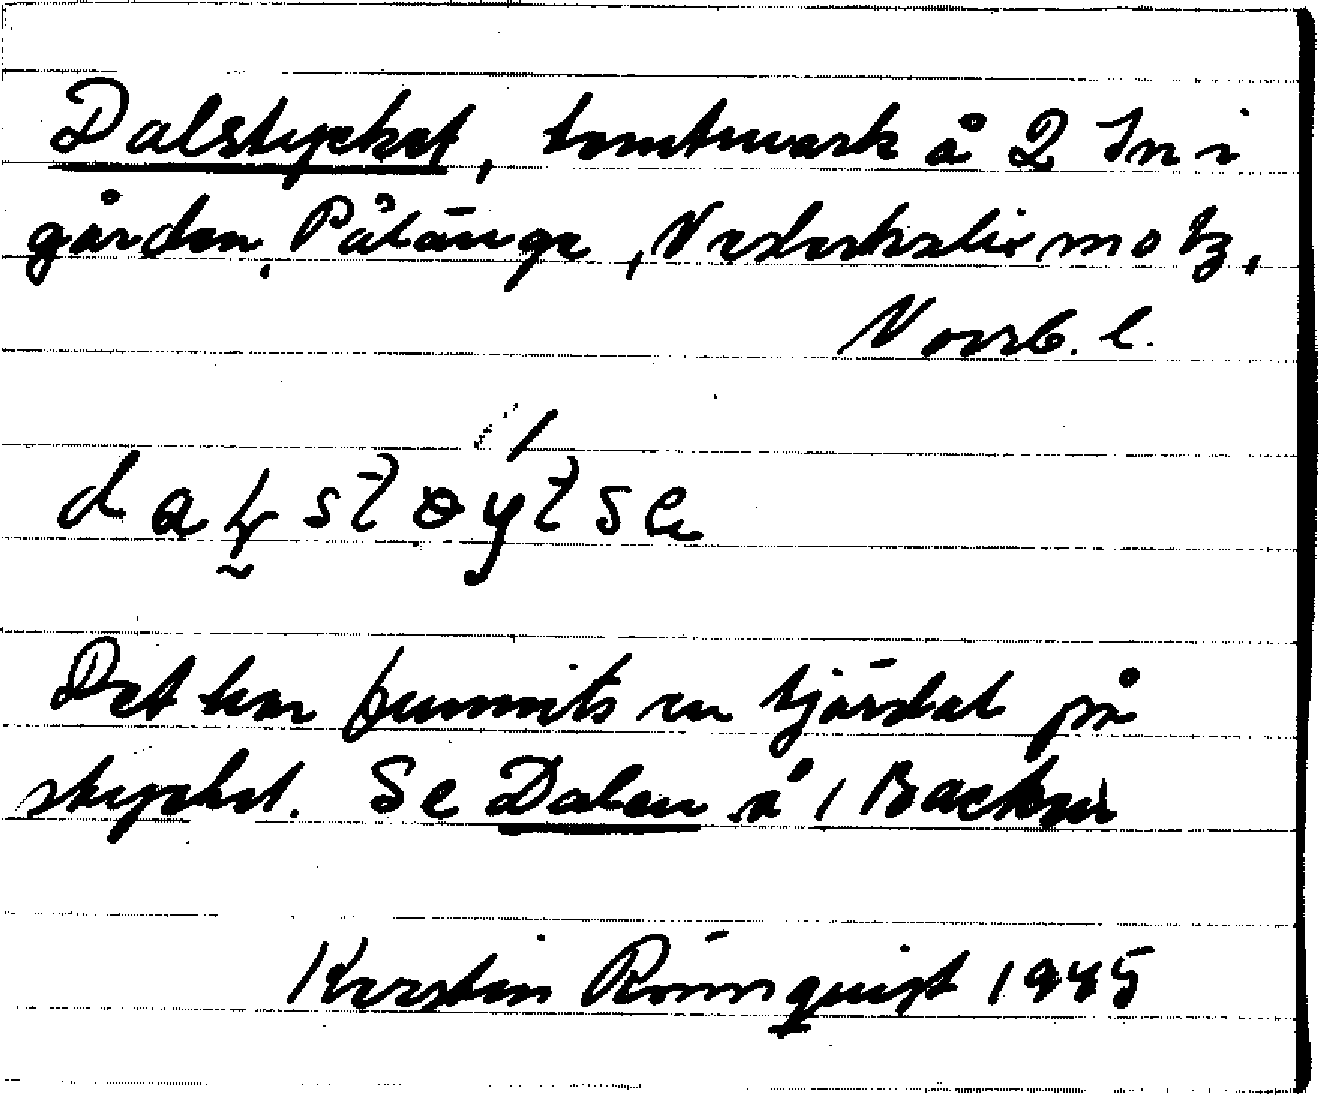 Dalstycket, tomtmark å 2 In i
gården, Pålänge, Nederkalix motz,
Norrb. l.
Det har funnits en tjärdal på
stycket. Se Dalen å 1 Backen
Kerstin Rönnquist 1945